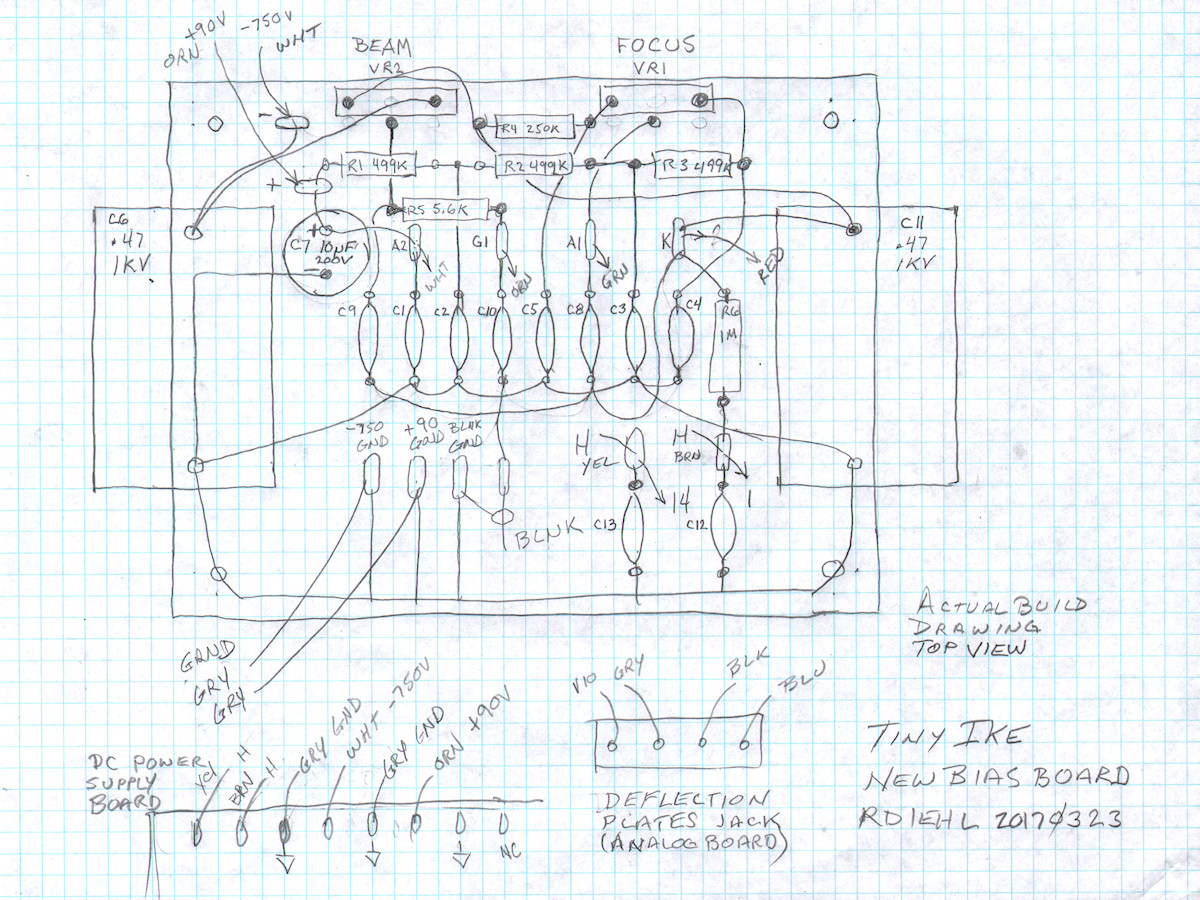 +90V
-750V
ORN
WHT
BEAM
VR2
FOCUS
VR1
-
R4 250K
R1 499K
R2 499K
R3 499K
+
R5 5.6K
C6
.47
1KV
+
C7 10uF
200V
-
A2
WHT
G1
ORN
A1
GRN
K
?
RED
C11
.47
1KV
C9
C1
C2
C10
C5
C8
C3
C4
R6
1M
-750
GND
+90
GND
BLNK
GND
H
YEL
H
BRN
14
1
BLNK
C13
C12
ACTUAL BUILD
DRAWING
TOP VIEW
GRND
GRY
GRY
DC POWER
SUPPLY
BOARD
YEL H
BRN H
GRY GND
WHT -750V
GRY GND
ORN +90V
NC
VIO
GRY
BLK
BLU
DEFLECTION
PLATES JACK
(ANALOG BOARD)
TINY IKE
NEW BIAS BOARD
RDIEHL 20170323